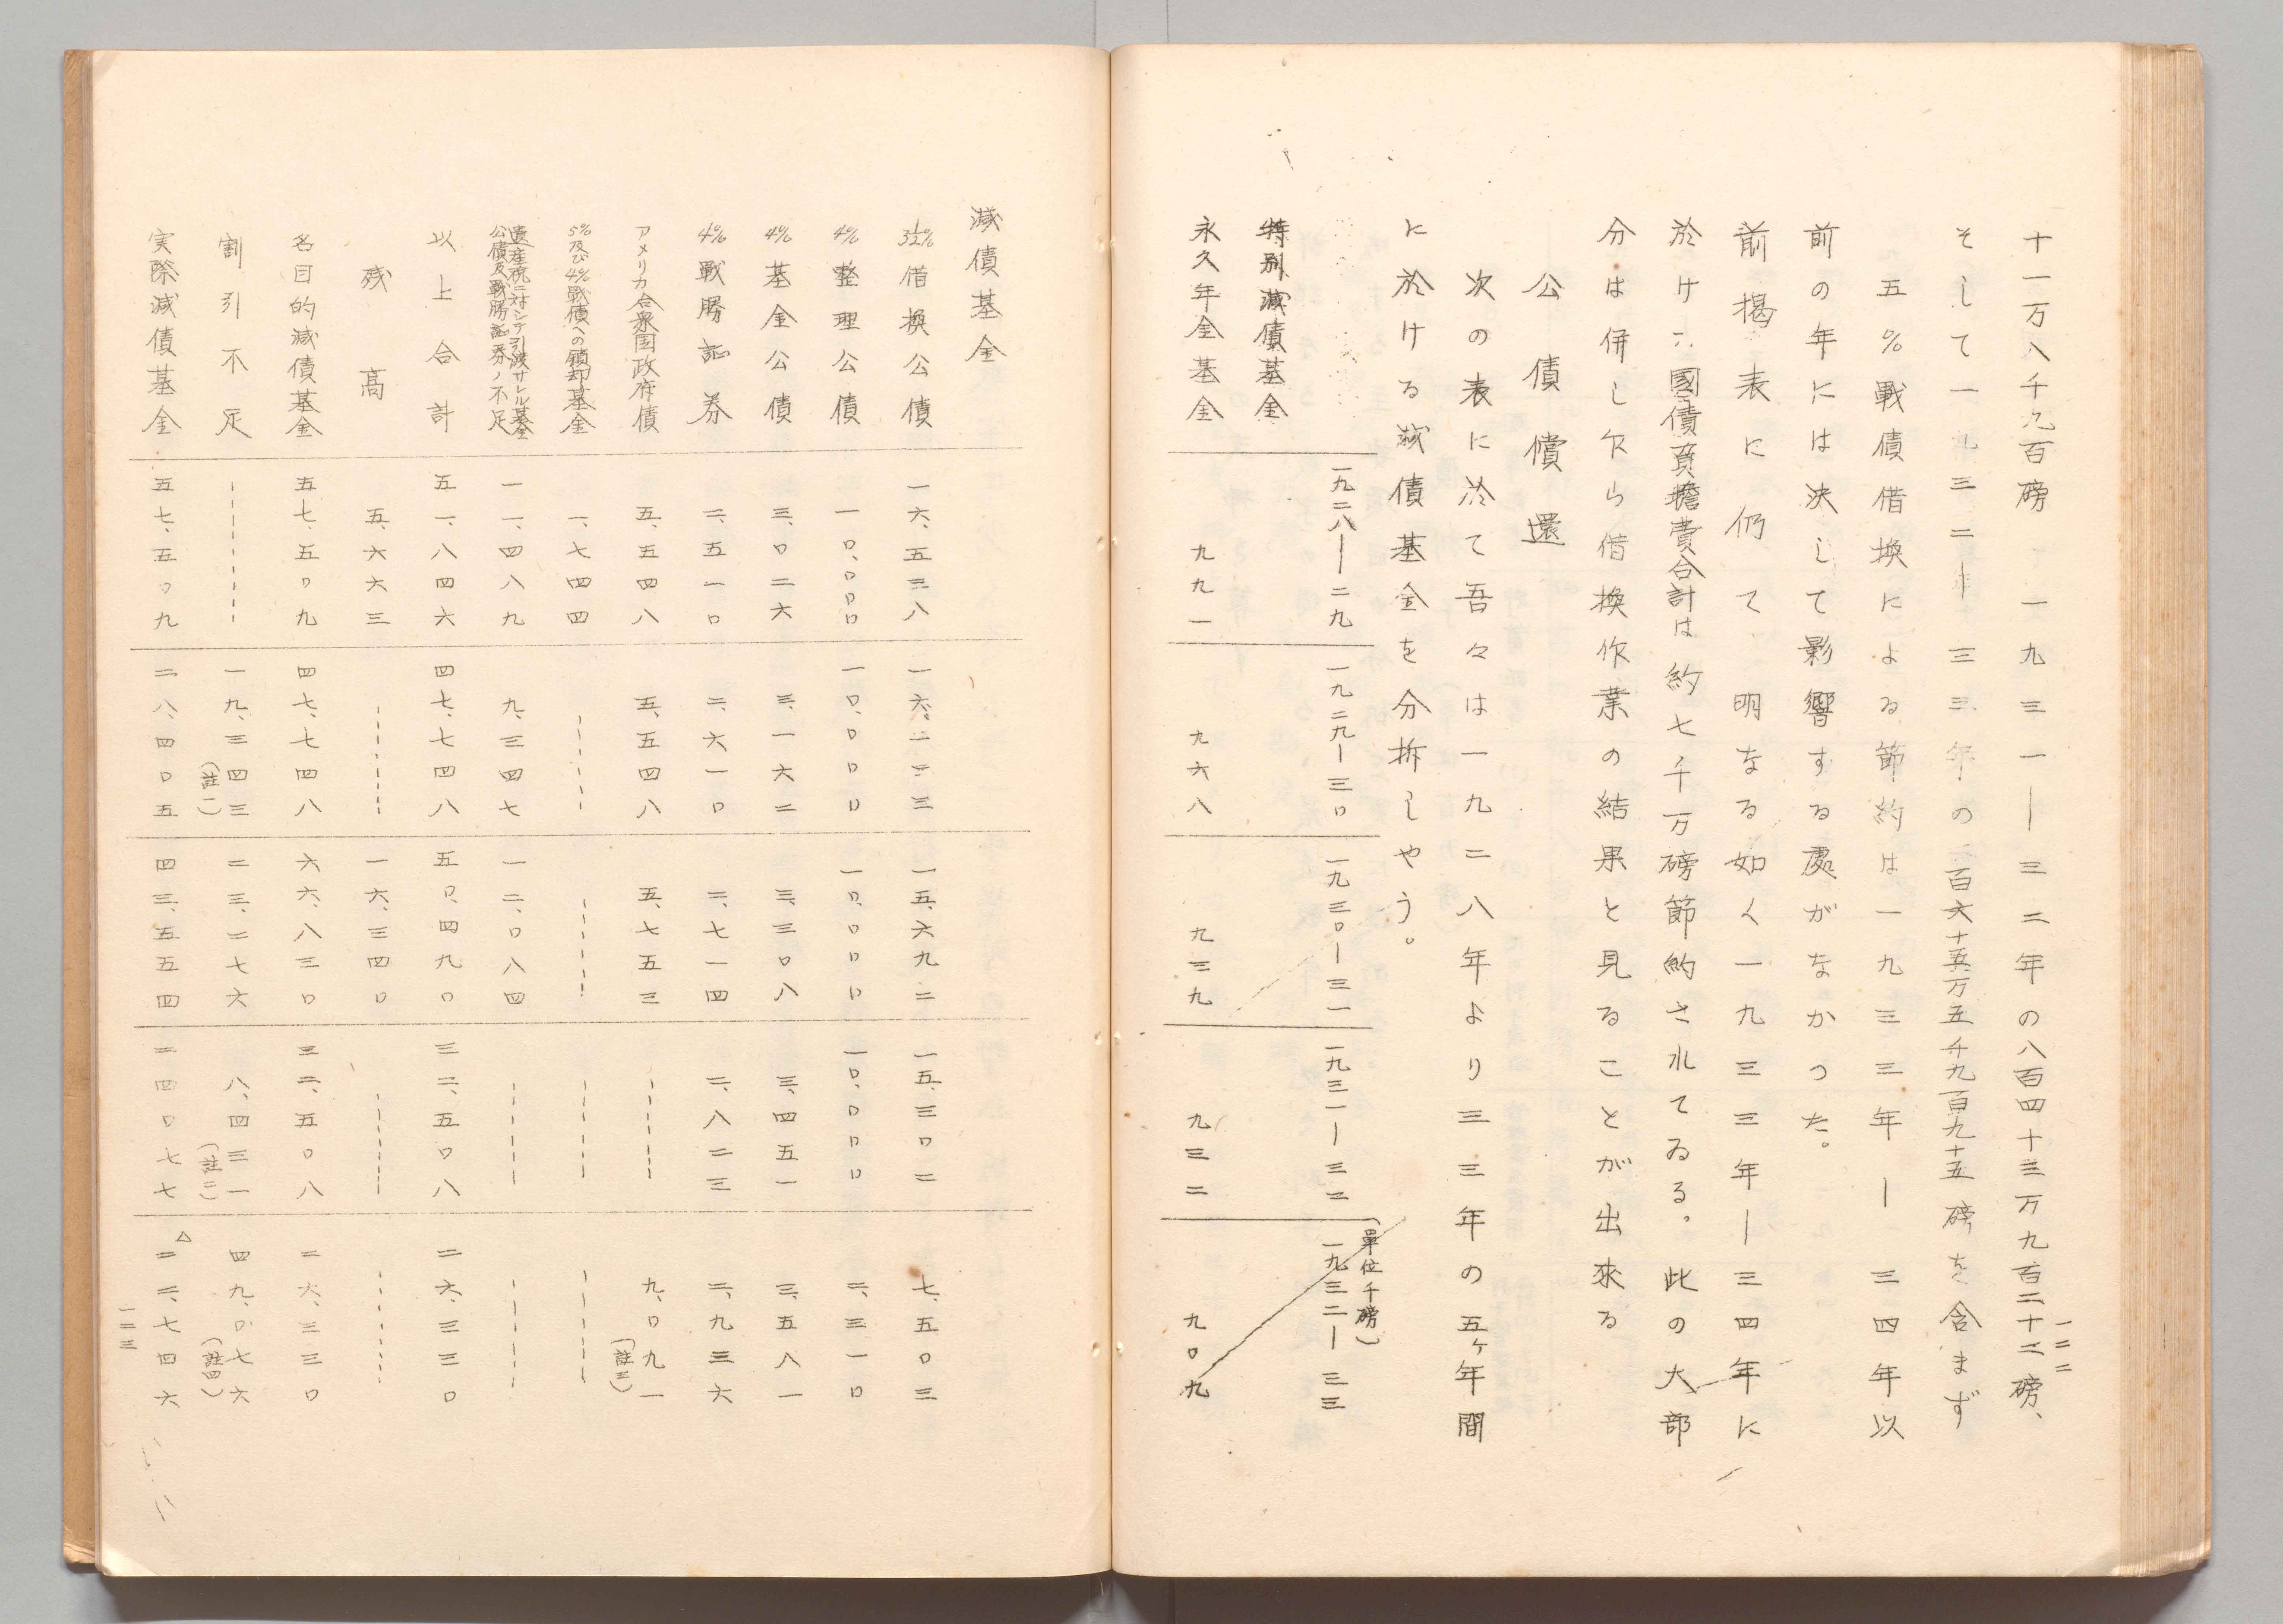 十一万八千九百磅、一九三一―三二年の八百四十三万九百二十二磅、
そして一九三二―三三年の二百六十五万五千九百九十五磅を含まず
五%戦債借換による節約は一九三三年―三四年以
前の年には決して影響する處がなかつた。
前揭表に仍て、明なる如く一九三三年―三四年に
於け六國債負擔費合計は約七千万磅節約されてゐる。此の大部
分は併し乍ら借換作業の結果と見ることが出來る
公債償還
次の表に於て吾々は一九二八年より三三年の五ヶ年間
に於ける減債基金を分拆しやう。
(單位千磅)
一九二八―二九 一九二九―三〇 一九三〇―三一 一九三一―三二 一九三二―三三
特別減債基金
永久年金基金 九九一 九六八 九三九 九三二 九〇九
一二二
減債基金
3½% 借換公債 一六、五三八 一六、二三三 一五、六九二 一五、三〇二 七、五〇三
4% 整理公債 一〇、〇〇〇 一〇、〇〇〇 一〇、〇〇〇 一〇、〇〇〇 二、三一〇
4% 基金公債 三、〇二六 三、一六二 三、三〇八 三、四五一 三、五八一
4% 戰勝証券 二、五一〇 二、六一〇 二、七一四 二、八二三 二、九三六
アメリカ合衆国政府債 五、五四八 五、五四八 五、七五三 ------ 九、〇九一(註三)
5%及び4%戰債への償却基金 一、七四四 ------ ------ ------ ------
遺産税ニ対シテ引渡サレル基金公債及戰勝証券ノ不足 一一、四八九 九、三四七 一二、〇八四 ------ ------
以上合計 五一、八四六 四七、七四八 五〇、四九〇 三二、五〇八 二六、三三〇
残高 五、六六三 ------ 一六、三四〇 ------ ------
名目的減債基金 五七、五〇九 四七、七四八 六六、八三〇 三二、五〇八 二六、三三〇
割引不足 ------ 一九、三四三(註一) 二三、二七六 八、四三一(註二) 四九、〇七六(註四)
実際減債基金 五七、五〇九 二八、四〇五 四三、五五四 二四〇七七 △二二、七四六
一二三